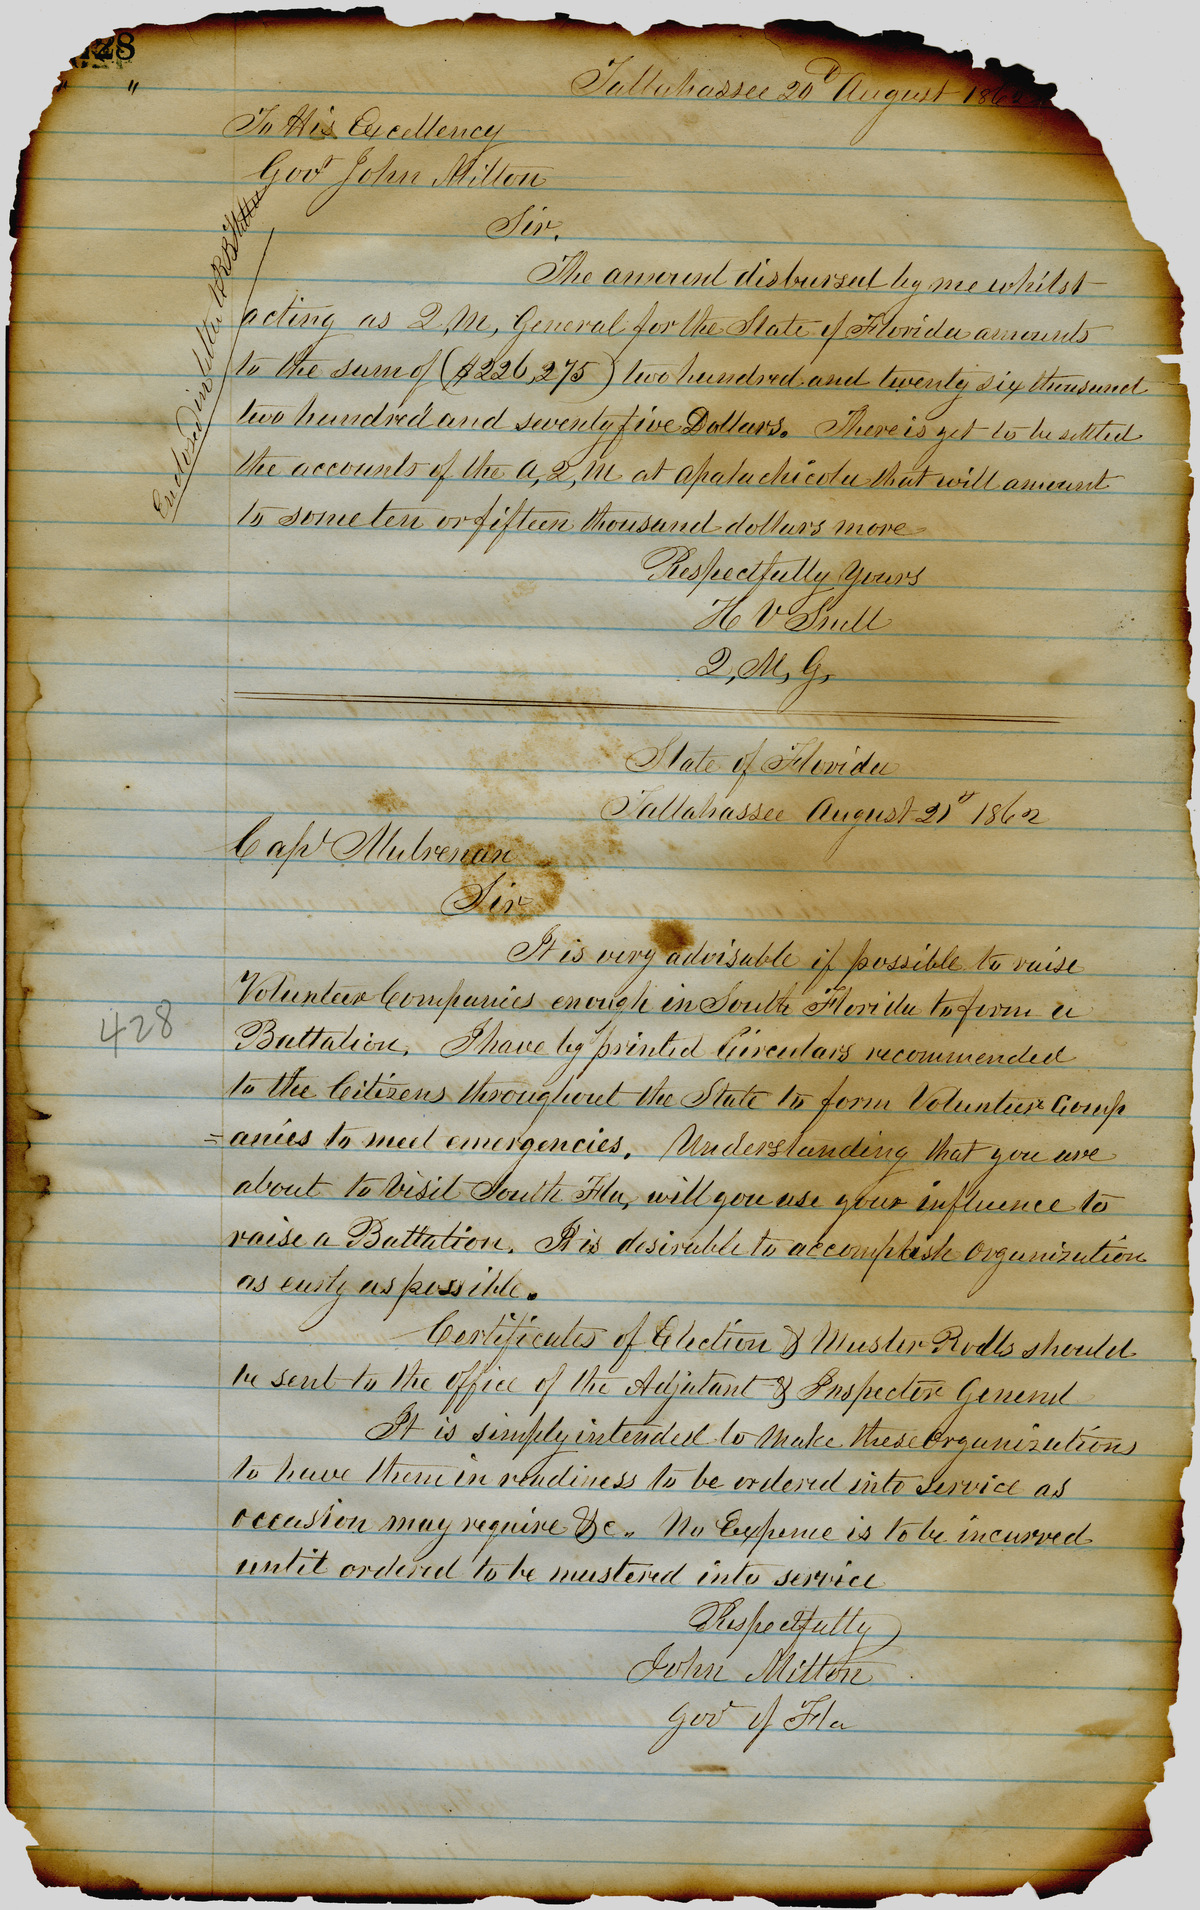 428
" "
Tallahassee 20th August 186
To His Excellency
Govr John Milton
Sir.
Enclosed in letter to
The amount disbursed by me whilst
acting as Q, M, General for the State of Florida amounts
to the sum of ($226,275) two hundred and twenty six thousand
two hundred and seventy five Dollars. There is yet to be settled
the accounts of the A, Q, M at Apalachicola that will amount
to some ten or fifteen thousand dollars more
Respectfully Yours
H V Snell
Q, M, G,
State of Florida
Tallahassee August 21st 1862
Capt Mulrenan
Sir
It is very advisable if possible to raise
Volunteer Companies enough in South Florida to form a
Battalion. I have by printed Circulars recommended
to the Citizens throughout the State to form Volunteer Comp
=anies to meet emergencies. Understanding that you are
about to visit South Fla, will you use your influence to
raise a Battalion. It is desirable to accomplish Organization
as early as possible.
Certificates of Election & Muster Rolls should
be sent to the Office of the Adjutant & Inspector General
It is simply intended to make these Organizations
to have them in readiness to be ordered into service as
occasion may require &c. No Expense is to be incurred
until ordered to be mustered into service
Respectfully
John Milton
Gov of Fla
428